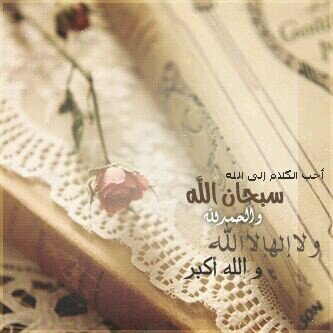 أحب الكلام إلى الله
سبحان الله
والحمدلله
ولا إله إلا الله
و الله أكبر